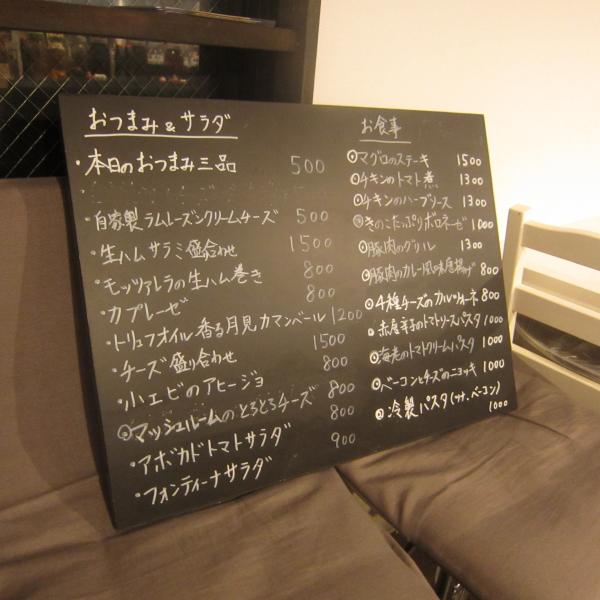 おつまみ&サラダ
・本日のおつまみ三品 500
・自家製ラムレーズンクリームチーズ 500
・生ハムサラミ盛合わせ 1500
・モッツァレラの生ハム巻き 800
・カプレーゼ 800
・トリュフオイル香る月見カマンベール 1200
・チーズ盛り合わせ 1500
・小エビのアヒージョ 800
マッシュルームのとろとろチーズ 800
・アボカドトマトサラダ 800
・フォンティーナサラダ 900
お食事
マグロのステーキ 1500
チキンのトマト煮 1300
チキンのハーブソース 1300
きのこたっぷりボロネーゼ 1000
豚肉のグリル 1300
豚肉のカレー風味唐揚げ 800
4種チーズのカルツォーネ 800
赤唐辛子のトマトソースパスタ 1000
海老のトマトクリームパスタ 1000
ベーコンとチーズのニョッキ 1000
冷製パスタ(ツナ、ベーコン) 1000